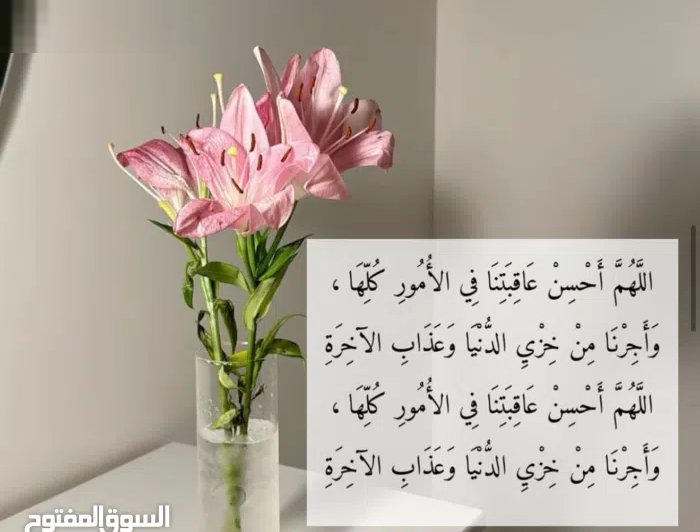 اللَّهُمَّ أَحْسِنْ عَاقِبَتِنَا فِي الأُمُورِ كُلِّهَا ،
وَأَجِرْنَا مِنْ خِزْيِ الدُّنْيَا وَعَذَابِ الآخِرَةِ
اللَّهُمَّ أَحْسِنْ عَاقِبَتِنَا فِي الأُمُورِ كُلِّهَا ،
وَأَجِرْنَا مِنْ خِزْيِ الدُّنْيَا وَعَذَابِ الآخِرَةِ
السوق المفتوح